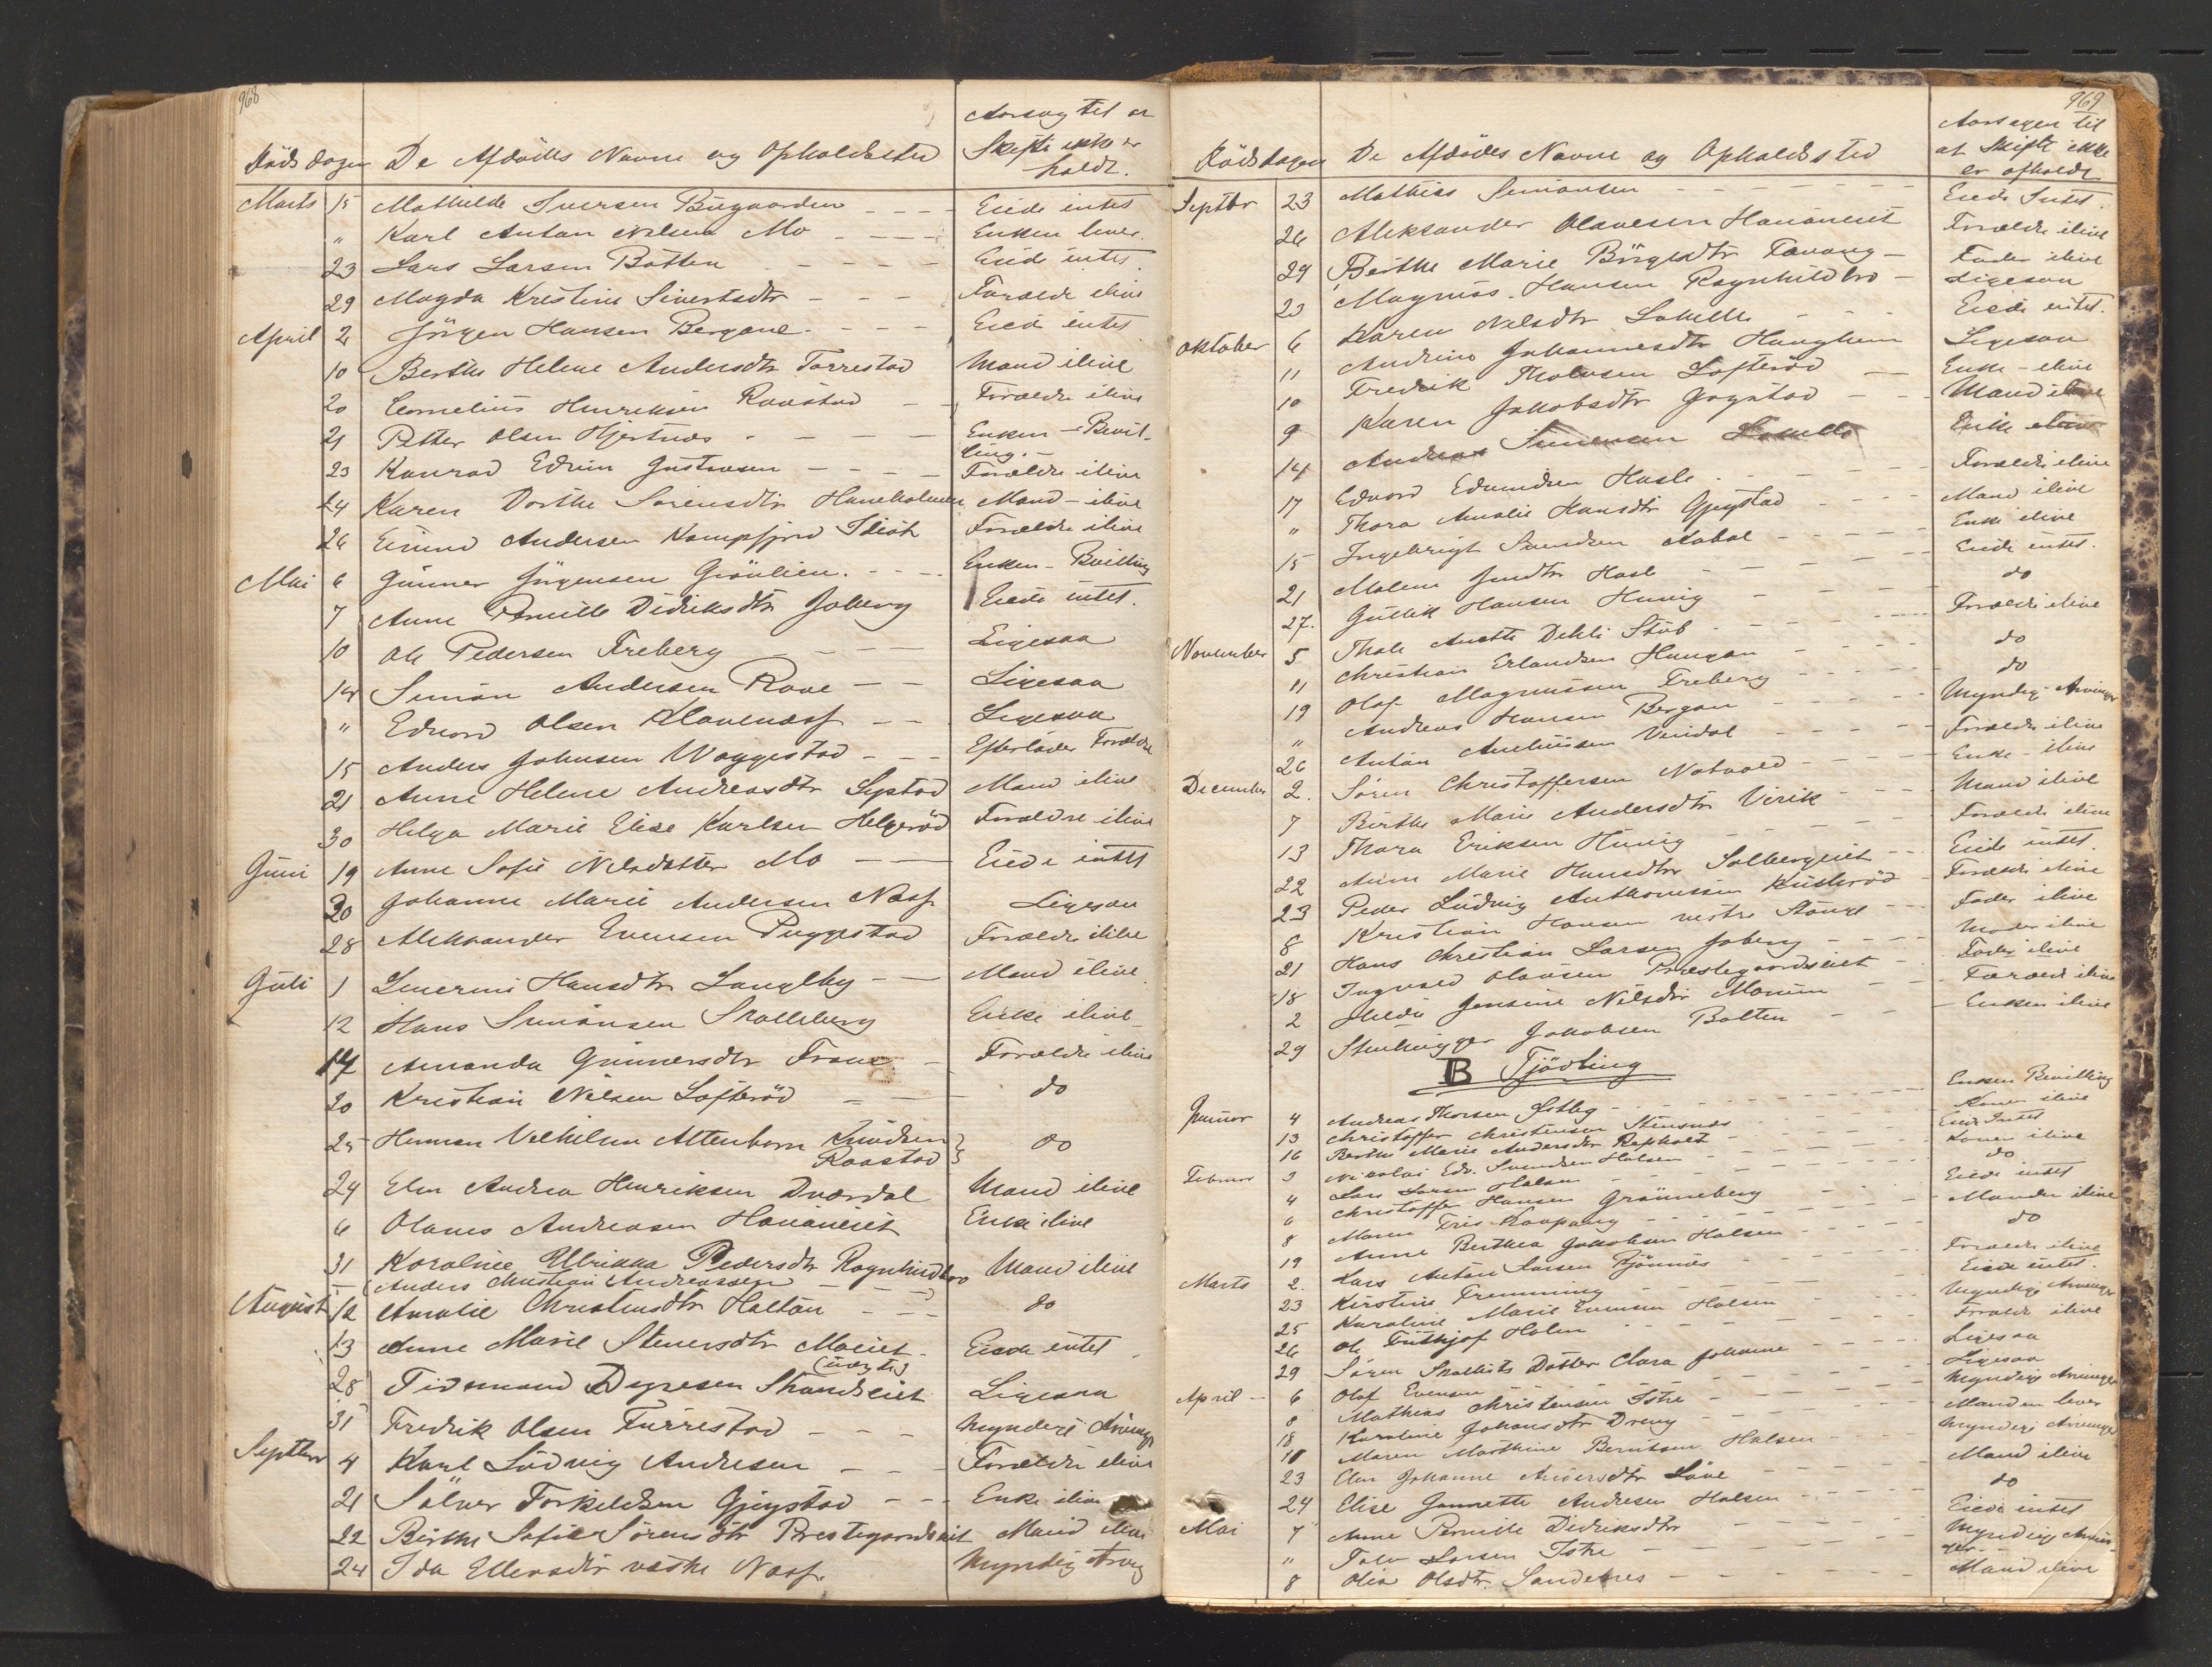 968
Aarsag til at
Dødsdagen De Afdødes Navne og Opholdssted Skifte ikke er
holdt.
Marts 15 Mathilde Iversen Bugaarden Eiede intet
" Karl Anton Nilsen Mo Enken lever.
23 Lars Larsen Botten Eiede intet
29 Magda Kristine Sivertsdtr Forældre ilive
April 2 Jörgen Hansen Bergane Eiede intet
10 Berthe Helene Andersdtr Torrestad Mand ilive
20 Cornelius Henriksen Raastad Forældre ilive
21 Petter Olsen Hjertnæs Enken - Bevil-
ling.
23 Konrad Edvin Gustavsen Forældre ilive
24 Karen Dorthe Sörensdtr Haneholmen Mand - ilive
26 Eivind Andersen Kampfjord Idiot Forældre ilive
Mai 6 Gunner Jörgensen Grönlien Enken - Bevilling
7 Anne Pernille Didriksdtr Joberg Eiede intet.
10 Ole Pedersen Freberg Ligesaa
14 Simon Andersen Rove Ligesaa
" Edvard Olsen Klavenæss Ligesaa
15 Anders Johnsen Waggestad Efterlader Forældre
21 Anne Helene Andreasdtr Lystad Mand ilive
30 Helga Marie Elise Karlsen Helgeröd Forældre ilive
Juni 19 Anne Sofie Nilsdatter Mo Eiede intet
20 Johanne Marie Andersen Næss Ligesaa
28 Aleksander Evensen Puggestad Forældre ilive
Juli 1 Severine Hansdtr Langeby Mand ilive
12 Hans Simonsen Skalleberg Enke ilive
14 Amanda Gunnersdtr Fram Forældre ilive
20 Kristian Nilsen Lofteröd do
25 Herman Vilhelm Altenborn Knudsen
Raastad do
24 Elen Andrea Henriksen Dværdal Mand ilive
6 Olaves Andreasen Hauaneiet Enke ilive
31 Karoline Ulrikka Pedersdtr Ragnhildbro Mand ilive
(Anders Christian Andreassen)
August 12 Amalie Christensdtr Haltan do
13 Anne Marie Stenersdtr Moeiet Eiede intet
28 Tidemand Dyresen Strandeiet Ligesaa
31 Fredrik Olsen Furrestad Myndige Arvinger
Septbr 4 Karl Ludvig Andresen Forældre ilive
21 Sölver Torkildsen Gjegstad Enke ilive
22 Berthe Sofie Sörensdtr Prestegaardseiet Mand ilive
24 Ida Ellevsdtr vestre Næss. Myndig Arving
969
Aarsagen til
Dødsdagen De Afdødes Navne og Opholdssted at Skifte ikke
er afholdt
Septbr 23 Mathias Simonsen Eiede Intet.
26 Aleksander Olavesen Hauaneiet Forældre ilive
29 Berthe Marie Börgesdtr Farvang Fader ilive
23 Magnus Hansen Ragnhildbro Ligesaa
Oktober 6 Karen Nilsdtr Lakille Eiede intet.
11 Andrine Johannesdtr Haughem Ligesaa
10 Fredrik Tholvsen Lofteröd Enke - ilive
9 Karen Jakobsdtr Gogstad Mand ilive
14 Andreas Simensen Enke ilive
17 Edvard Edvindsen Hasle Forældre ilive
" Thora Amalie Hansdtr Gjegstad Mand ilive
15 Ingebrigt Svendsen Aabol Enke ilive
21 Malene Jensdtr Hasle Eiede intet.
27. Gullik Hansen Hunig do
November 5 Thale Anette Dehli Stub Forældre ilive
11 Christian Erlandsen Haugan do
19 Olaf Magnussen Freberg do
" Andreas Hansen Bergan Myndige Arvinger
26 Anton Anthonsen Vindal Forældre ilive
December 2. Sören Christoffersen Natvald Enke - ilive
7 Berthe Marie Andersdtr Virik Mand ilive
13 Thora Eriksen Hunig Forældre ilive
22 Anne Marie Hansdtr Solbergeiet Eiede intet.
23 Peder Ludvig Anthonissen Kusleröd Forældre ilive
8 Kristian Hansen vestre Stange Fader ilive
21 Hans Christian Larsen Joberg Moder ilive
18 Ingvald Olavsen Præstegaardseiet Fader ilive
2 Hilda Jensine Nilsdtr Morum Forældre ilive
29 Stenhugger Jakobsen Botten Enken ilive
B Tjödling
Januar 4 Andreas Thorsen Østby Enken Bevilling
13 Christoffer Christensen Stensnæs Konen ilive
16 Berthe Marie Andersdtr Rekkevik Eiede Intet
Februar 3 Nikolai Edv. Svendsen Halsen Konen ilive
4 Lars Larsen Halsen do
6 Christoffer Hansen Grönneberg Eiede intet
8 Maren Iris Kaupang Manden ilive
19 Anne Berthea Jakobsen Halsen do
Marts 2. Lars Anton Larsen Bjönnes Forældre ilive
23 Kirstine Fremming Eiede intet.
25 Karoline Marie Evensen Halsen Myndige Arvinger
26 Ole Frithjof Holm Forældre ilive
29 Sören Skallists Datter Clara Johanne Ligesaa
April 6 Olaf Evensen Ligesaa
8 Mathias Christensen Istre Myndige Arvinger
18 Karoline Johansdtr Dreng Manden lever
18 Maren Marthine Berntsen Halsen Myndige Arvinger
23 Elen Johanne Andersdtr Löve Mand ilive
24 Elise Jannette Andresen Halsen do
Mai 7 Anne Pernille Didriksdtr Eiede intet
" Tolv Larsen Istre Myndige Arvin-
ger
8 Olia Olsdtr. Sandernes Mand ilive